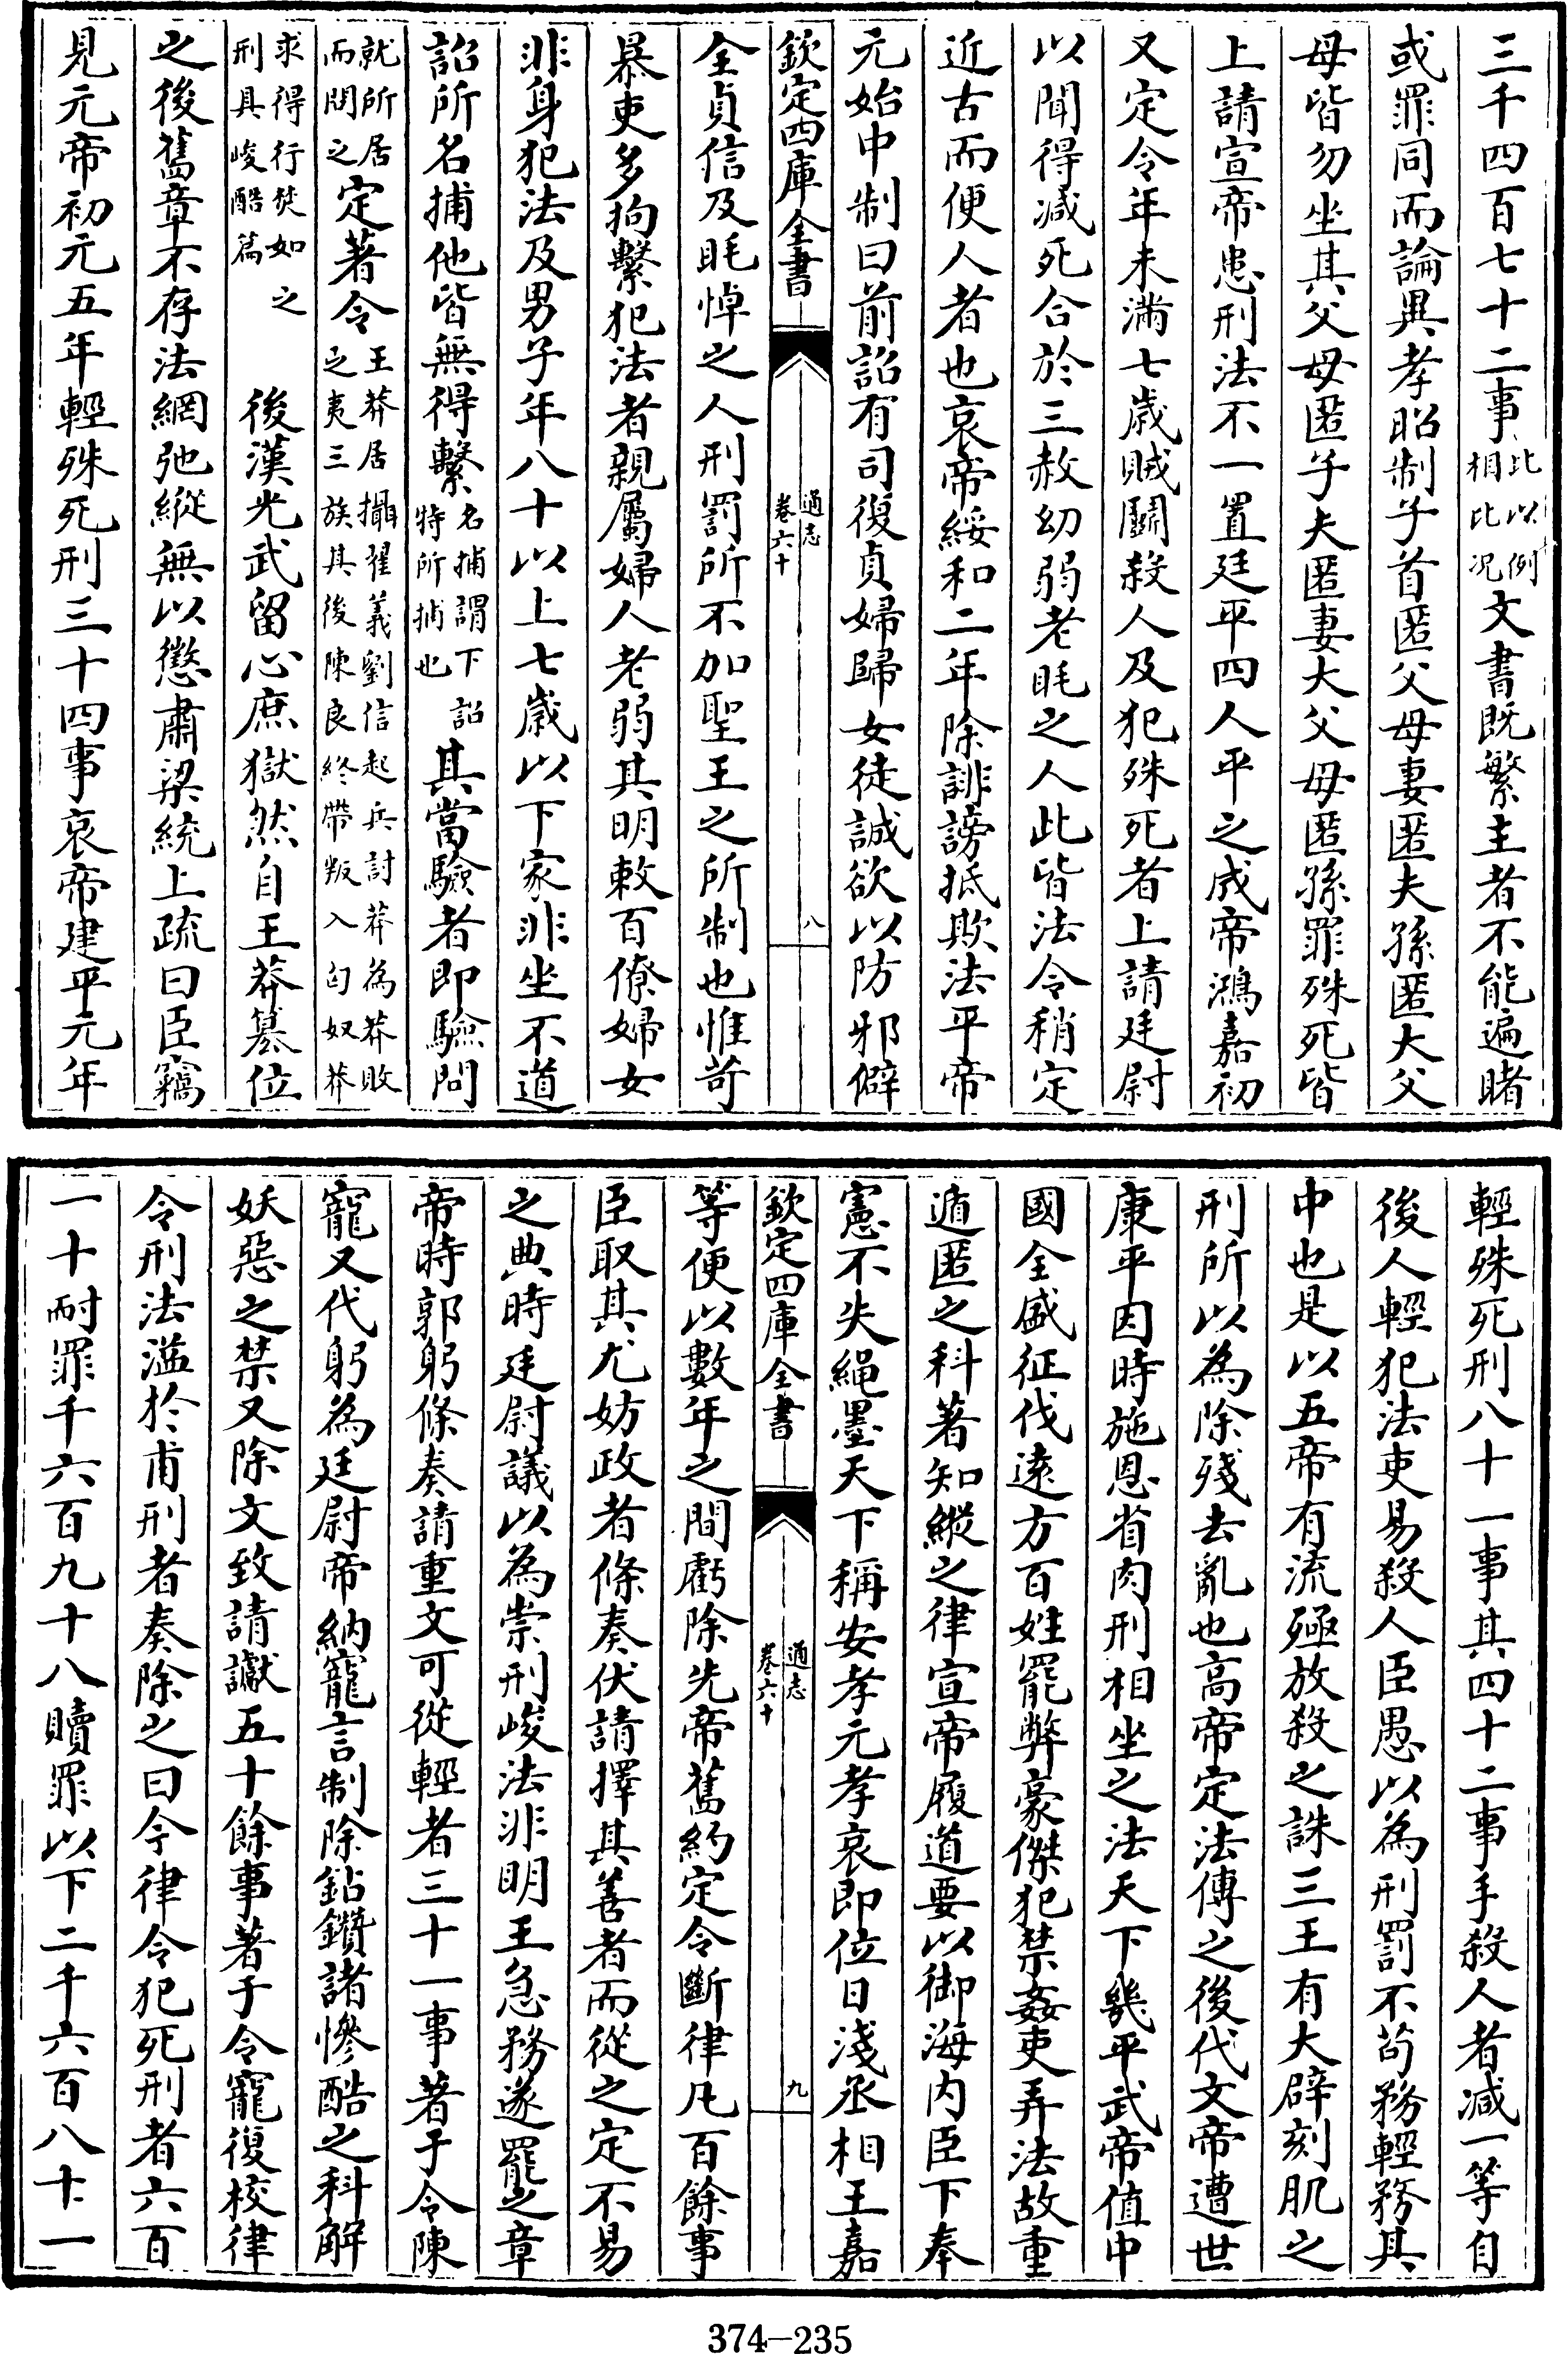 三千四百七十二事比以例相比况文書既繁主者不能遍睹
或罪同而論異孝昭制子首匿父母妻匿夫孫匿大父
母皆勿坐其父母匿子夫匿妻大父母匿孫罪殊死皆
上請宣帝患刑法不一置廷平四人平之成帝鴻嘉初
又定令年未滿七歲賊鬭殺人及犯殊死者上請廷尉
以聞得減死合於三赦幼弱老眊之人此皆法令稍定
近古而便人者也哀帝綏和二年除誹謗抵欺法平帝
元始中制曰前詔有司復貞婦歸女徒誠欲以防邪僻
欽定四庫全書
通志
卷六十
八
全貞信及眊悼之人刑罰所不加聖王之所制也惟苛
暴吏多拘繫犯法者親屬婦人老弱其明敕百僚婦女
非身犯法及男子年八十以上七歲以下家非坐不道
詔所名捕他皆無得繫名捕謂下詔特所捕也其當驗者即驗問
就所居而問之定著令王莽居攝翟義劉信起兵討莽為莽敗之夷三族其後陳良終帶叛入匈奴莽
求得行焚如之刑具峻酷篇後漢光武留心庶獄然自王莽篡位
之後舊章不存法網弛縱無以懲肅梁統上疏曰臣竊
見元帝初元五年輕殊死刑三十四事哀帝建平元年
輕殊死刑八十一事其四十二事手殺人者减一等自
後人輕犯法吏易殺人臣愚以為刑罰不苟務輕務其
中也是以五帝有流殛放殺之誅三王有大辟刻肌之
刑所以為除殘去亂也高帝定法傳之後代文帝遭世
康平因時施恩省肉刑相坐之法天下幾平武帝值中
國全盛征伐遠方百姓罷弊豪傑犯禁姦吏弄法故重
遁匿之科著知縱之律宣帝履道要以御海内臣下奉
憲不失繩墨天下稱安孝元孝哀即位日淺丞相王嘉
欽定四庫全書
通志
卷六十
九
等便以數年之間虧除先帝舊約定令斷律凡百餘事
臣取其尤妨政者條奏伏請擇其善者而從之定不易
之典時廷尉議以為崇刑峻法非明王急務遂罷之章
帝時郭躬條奏請重文可從輕者三十一事著于令陳
寵又代躬為廷尉帝納寵言制除鉆鑽諸慘酷之科解
妖惡之禁又除文致請讞五十餘事著于令寵復校律
令刑法溢於甫刑者奏除之曰今律令犯死刑者六百
一十耐罪千六百九十八贖罪以下二千六百八十一
374-235